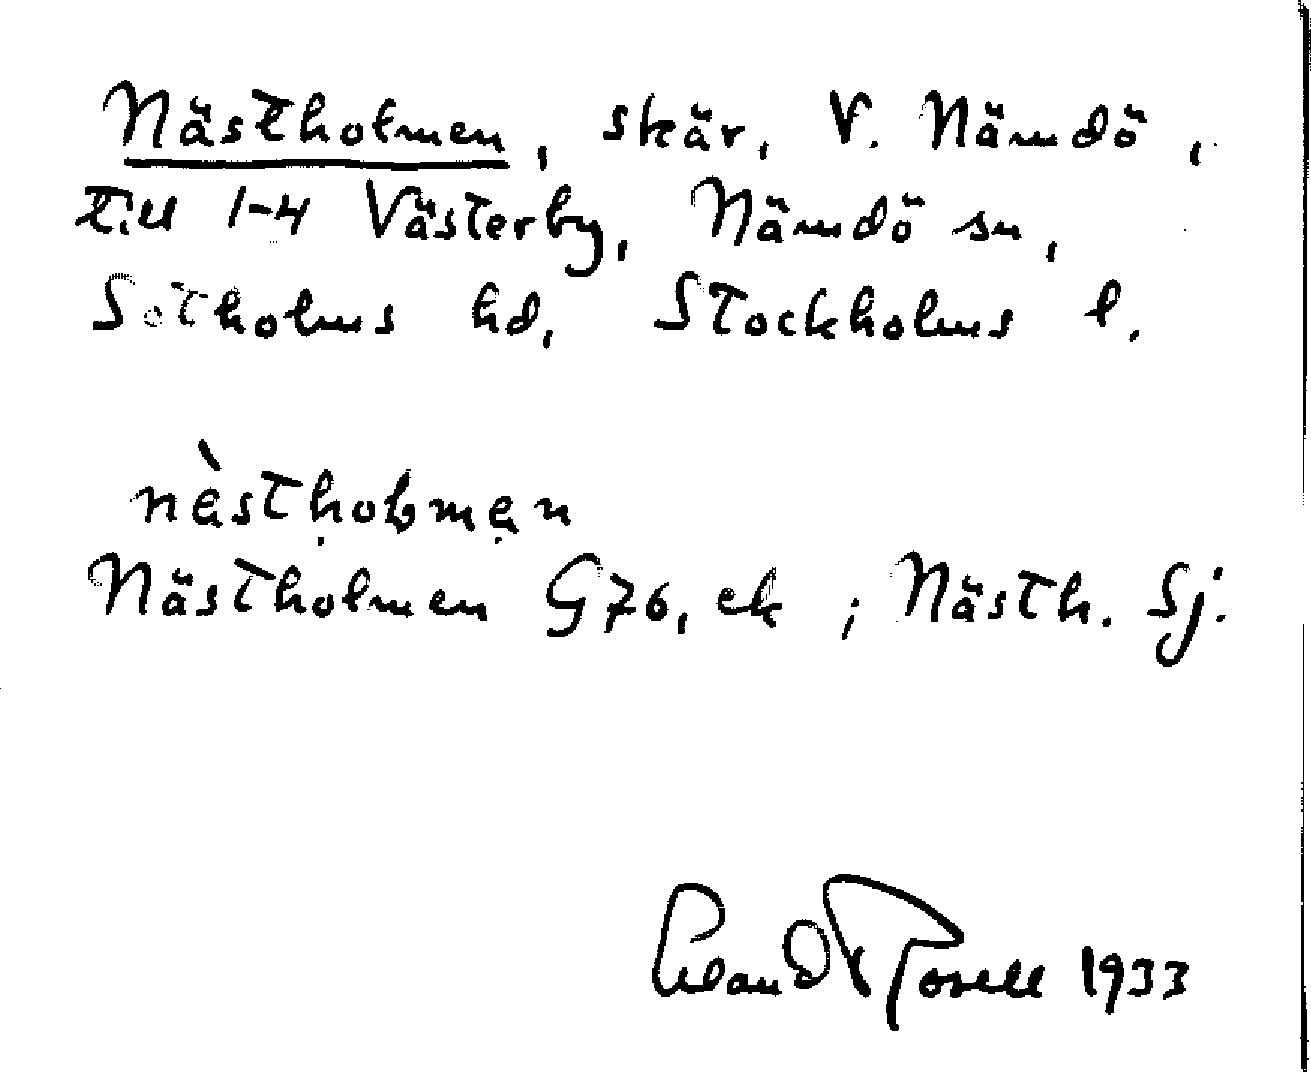 Nästholmen, skär, V. Nämdö,
till 1-4 Västerby, Nämdö sn,
Sotholms hd, Stockholms l.
nèstḥołmẹn
Nästholmen G76, ek ; Nästh. Sj.
Erland Rosell 1933